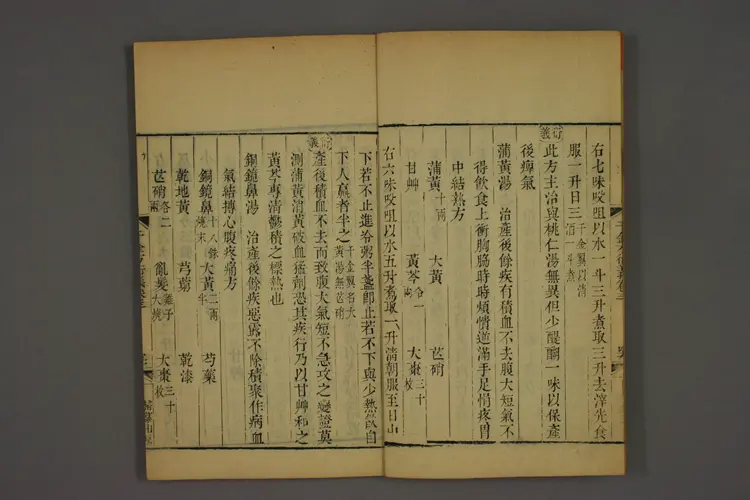 右七味㕮咀以水一斗三升煮取三升去滓先食
服一升日三千金翼以清酒一斗煮
衍義
此方主治與桃仁湯無異但少醍醐一味以保產
後瘅氣
蒲黃湯 治產後餘疾有積血不去腹大短氣不
得飲食上衝胸脇時時煩憒逆滿手足悁疼胃
中結熱方
蒲黃十兩 大黃 芒硝
甘艸 黃芩各一兩 大棗三十枚
右六味㕮咀以水五升煮取一升清朝服至日中
下若不止進冷粥半盞即止若不下與少熱飲自
下人羸者半之千金翼名大黃湯無芒硝
衍義
產後積血不去而致腹大氣短不急攻之變證莫
測蒲黃滑黃破血猛劑恐其疾行乃以甘艸和之
黃芩專清鬱積之標熱也
銅鏡鼻湯 治產後餘疾惡露不除積聚作病血
氣結摶心腹疼痛方
銅鏡鼻十八銖燒末 大黃二兩半 芍藥
乾地黃 芎藭 乾漆
芒硝各二兩 亂髮雞子大燒 大棗三十枚